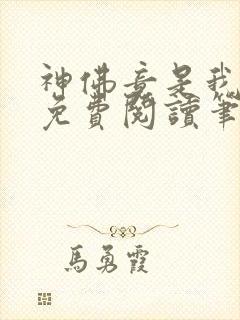 神佛竟是我
免費閱讀筆
馬勇霞